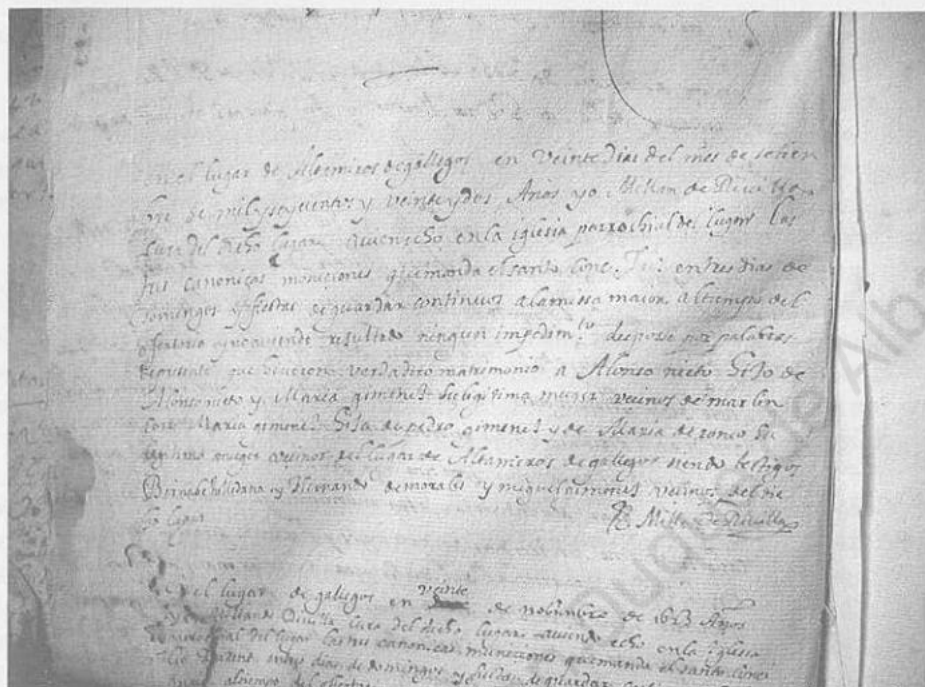 en el lugar de Altamiros de gallegos en veinte dias del mes de setien
bre de mil y seyscientos y veinte y dos Años yo Millan de Rivilla
cura del dicho lugar aviendo hecho en la iglesia parrochial del lugar las
tres canonicas moniciones que manda el santo conc. Tri. en tres dias de
domingos y fiestas de guardar continuos a la missa maior al tiempo del
ofertorio y no aviendo resultado ningun impedim.to despose por palabras
que hicieron verdadero matrimonio a Alonso nieto hijo de
Alonso nieto y Maria gimenez su legitima muger vecinos de marlin
con Maria gimenez hija de pedro gimenez y de Maria de ronco su
legitima muger vecinos del lugar de Altamiros de gallegos siendo testigos
Bernabe y Hernando de morales y miguel gimenez vecinos del di
cho lugar
Millan de Rivilla
En el lugar de gallegos en veinte de nobienbre de 1623 Años
cura del dicho lugar aviendo echo en la iglesia
parrochial del lugar las tres canonicas municiones que manda el santo conci
lio en tres dias de domingos y fiestas de guardar
al tiempo del ofertorio